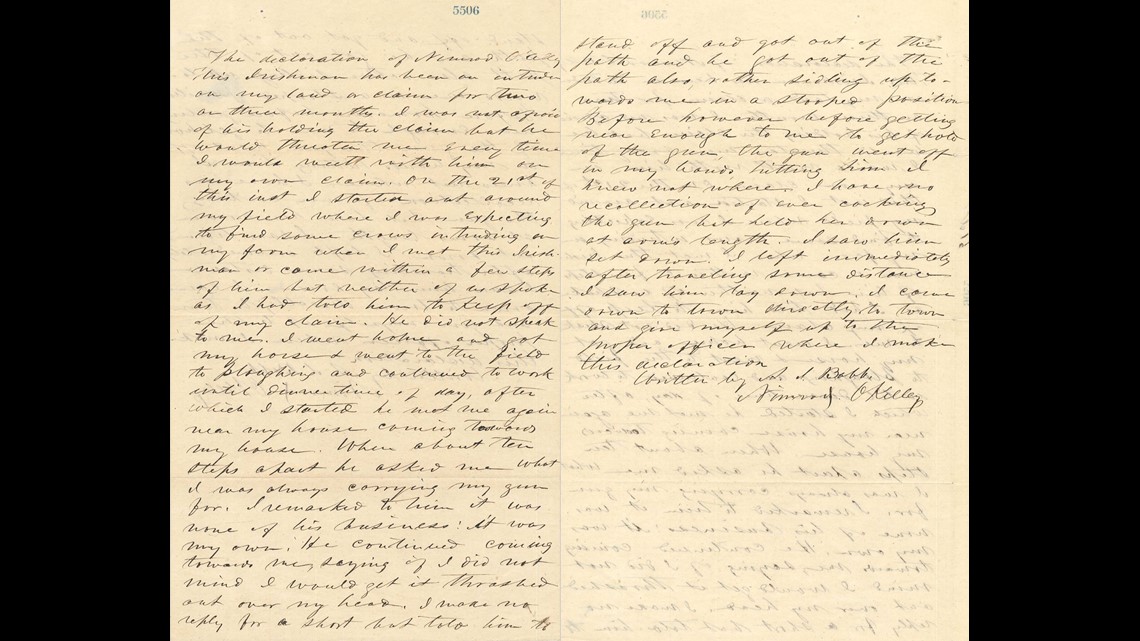 5506
The declaration of Nimrod O'Kelly
this Irishman has been an intruder
on my land or claim for two
or three months. I was not afraid
of his holding the claim but he
would threten me Every time
I would meett with him on
my own claim. On the 21st of
this inst I started out around
my field where I was Expecting
to find some crows intruding on
my farm when I met this Irish-
man or came within a few steps
of him but neither of us spoke
as I had told him to keep off
of my claim. He did not speak
to me. I went home and got
my horse & went to the field
to ploughing and continued to work
until dinner time of day, after
which I started he met me again
near my house coming towards
my house. When about ten
steps apart he asked me what
I was always carrying my gun
for. I remarked to him it was
none of his business: it was
my own. He continued coming
towards me, saying if I did not
mind I would get it thrashed
out over my head. I make no
reply for a short but told him to
stand off and got out of the
path and he got out of the
path also, rather sidling up to-
wards me in a stooped position
Before however before getting
near Enough to me to get hold
of the gun, the gun went off
in my hands hitting him I
knew not where. I have no
recollection of ever cocking
the gun but held her down
at arm's length. I saw him
set down. I left immediately
after traveling some distance
I saw him lay down. I came
down to town directly to town
and give myself up to the
proper officer where I make
this declaration
Written by A. J Babb
Nimrod OKelley